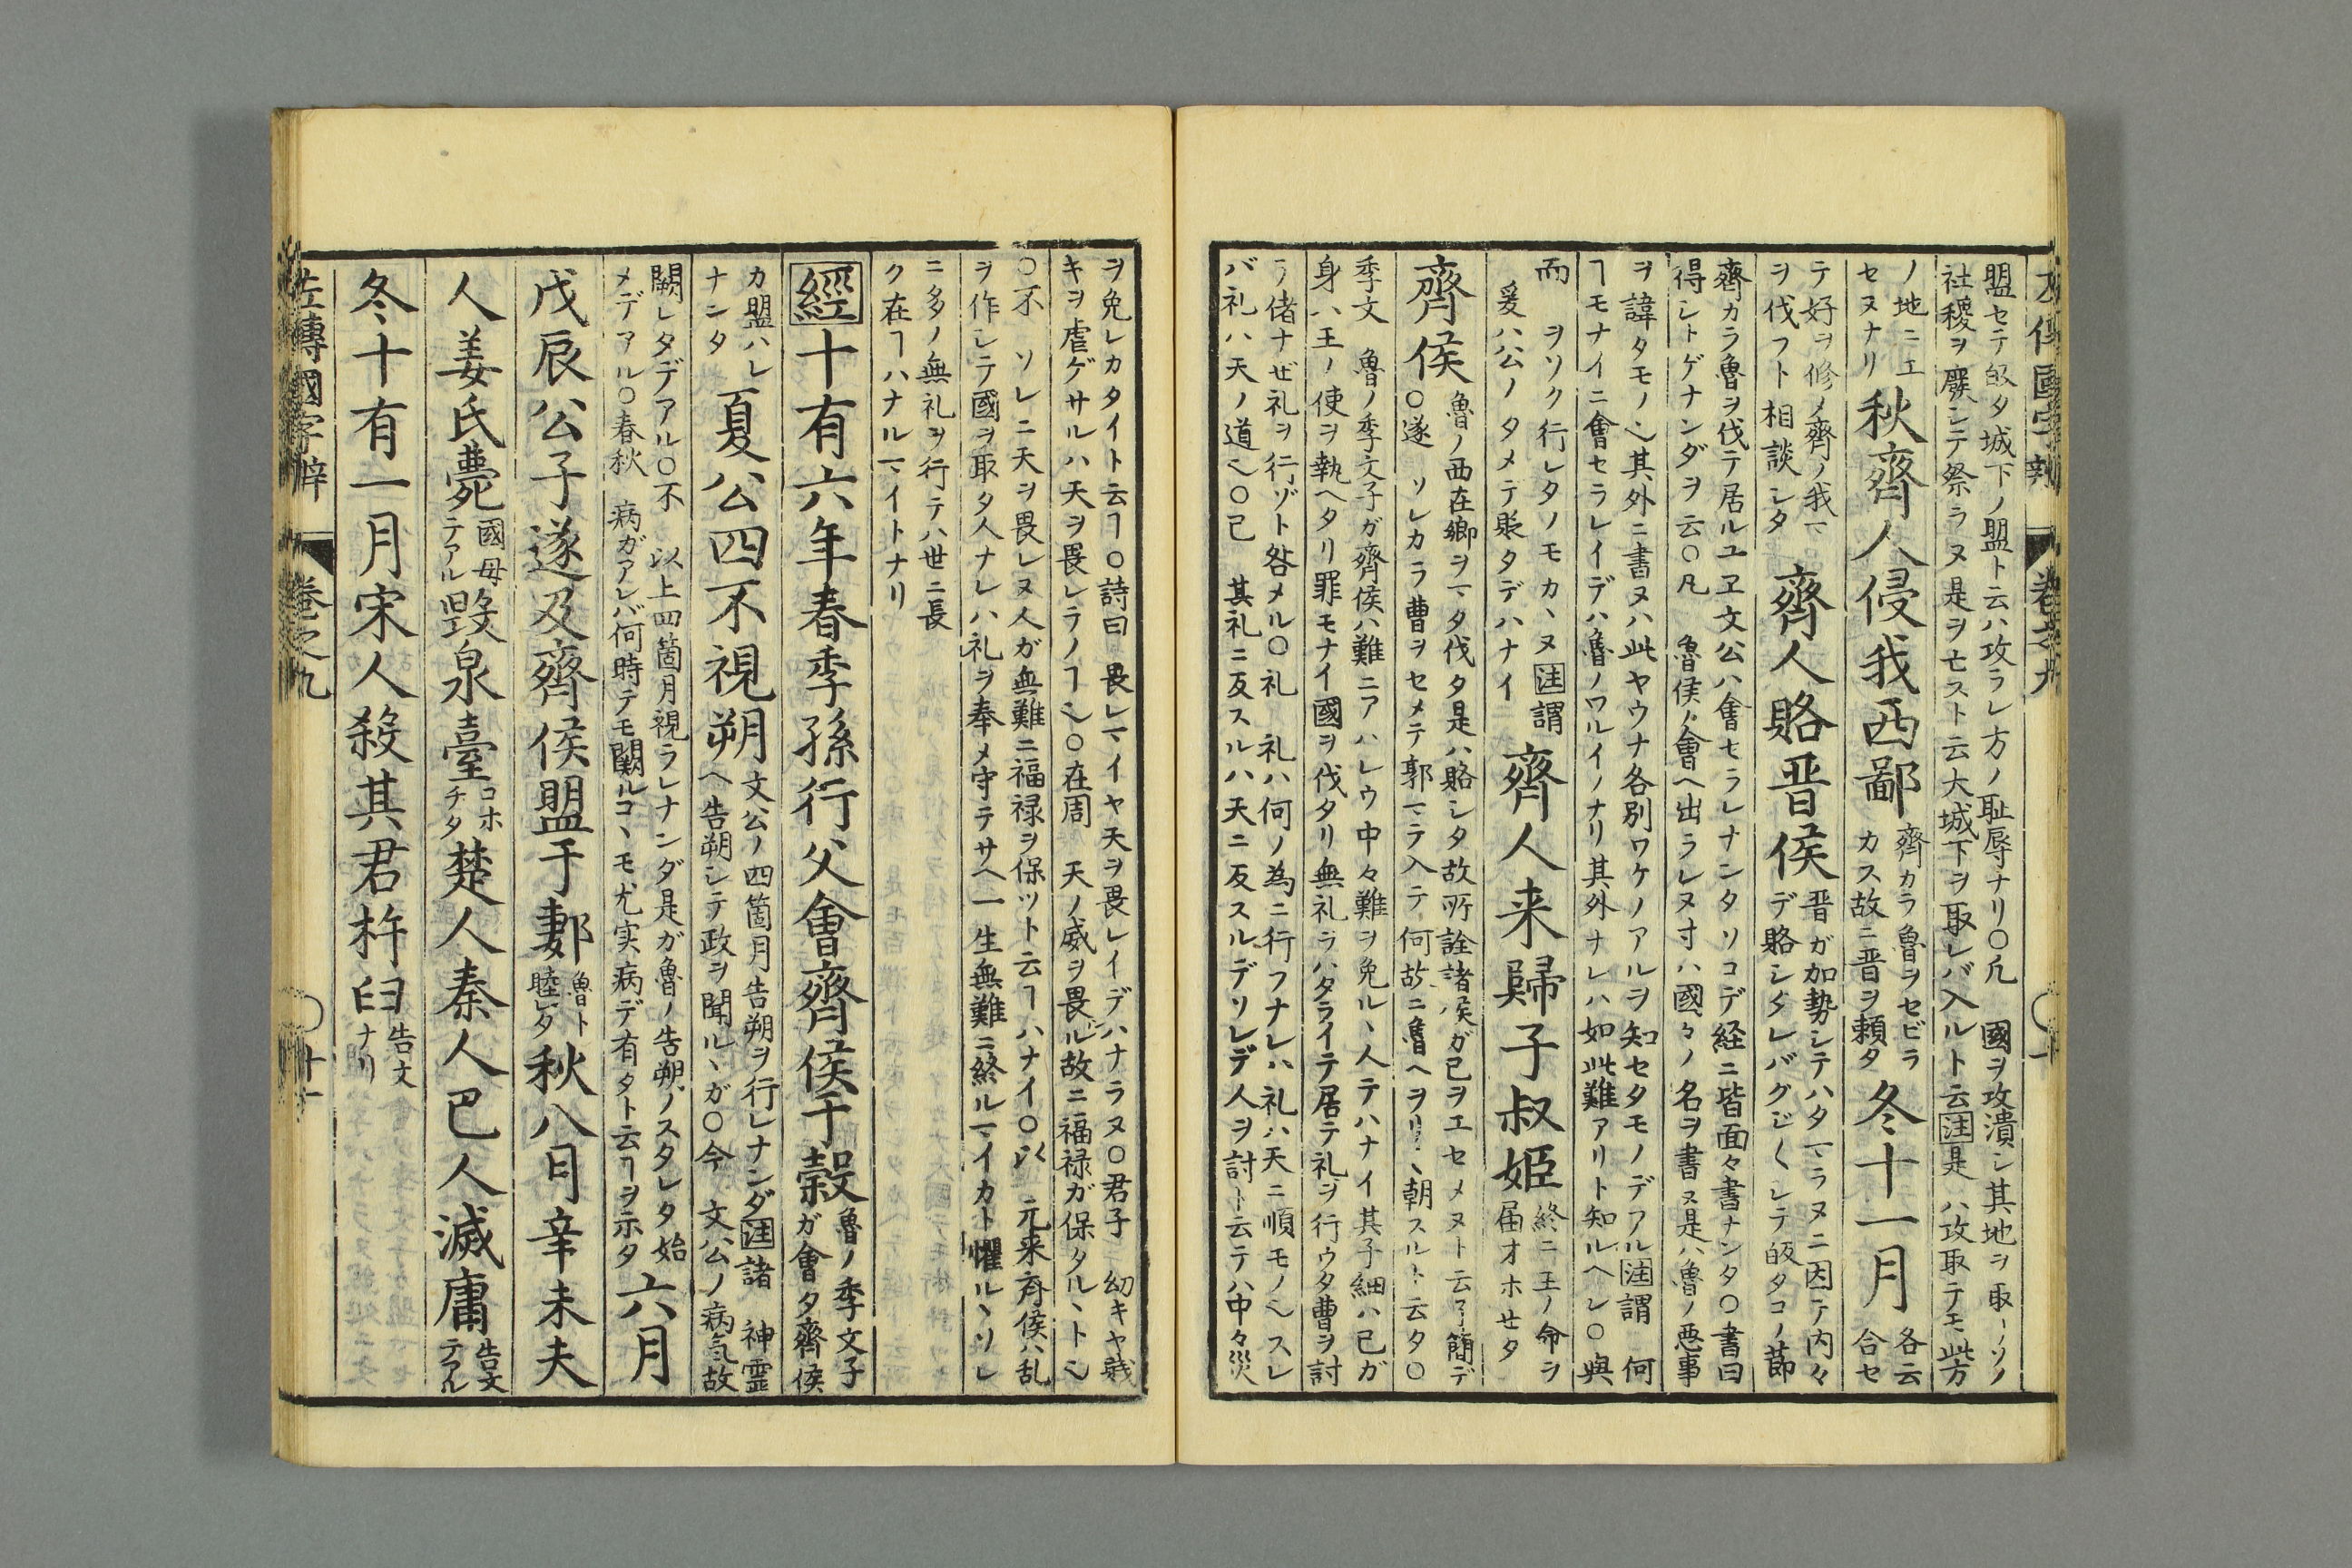 左傳國字辨 卷之九 十
盟セテ皈タ城下ノ盟ト云ハ攻ラレ方ノ耻辱ナリ〇凡 國ヲ攻潰シ其地ヲ取ーソノ
社稷ヲ廢シテ祭ラヌ是ヲ亡スト云大城下ヲ取レバ入ルト云注是 ハ攻取テモ此方
ノ地ニエ
セヌナリ
秋齊人侵我西鄙
齊カラ魯ヲセビラ
カス故ニ晋ヲ頼タ
冬十一月
各云
合セ
テ好ヲ修ノ齊ノ我マ
ヲ伐フト相談シタ
齊人賂晋侯
晋ガ加勢シテハタマラヌニ因テ内々
デ賂シタレバグビくシテ皈タコノ節
齊カラ魯ヲ伐テ居ルユヱ文公ハ會セラレナンタソコデ経ニ皆面々書ナンタ〇書曰
得シトゲナンダヲ云〇凡 魯侯ノ會ヘ出ラレヌ寸ハ國々ノ名ヲ書ヌ是ハ魯ノ悪事
ヲ諱タモノ〆其外ニ書ヌハ此ヤウナ各別ワケノアルヲ知セタモノデアル注謂 何
ヿモナイニ會セラレイデハ魯ノワルイノナリ其外ナレハ如此難アリト知ルヘシ〇與
而 ヲソク行レタノモカヽヌ注謂
爰ハ公ノタメテ賬タデハナイ
齊人来歸子叔姫
終ニ王ノ命ヲ
届オホセタ
齊侯
魯ノ西在郷ヲマタ伐タ是ハ賂シタ故所詮諸侯ガ己ヲエセメヌト云ヿ簡デ
〇遂 ソレカラ曹ヲセメテ郭マテ入テ何故ニ魯ヘヲリヽ朝スルト云タ〇
季文 魯ノ季文子ガ齊侯ハ難ニアハレウ中々難ヲ免ルヽ人テハナイ其子細ハ己ガ
身ハ王ノ使ヲ執ヘタリ罪モナイ國ヲ伐タリ無礼ラハタライテ居テ礼ヲ行ウタ曹ヲ討
ラ偖ナゼ礼ヲ行ゾト咎メル〇礼 礼ハ何ノ為ニ行フナレハ礼ハ天ニ順モノ〆スレ
バ礼ハ天ノ道〆〇己 其礼ニ反スルハ天ニ反スルデソレデ人ヲ討ト云テハ中々災
ヲ免レカタイト云ヿ〇詩曰 畏レマイヤ天ヲ畏レイデハナラヌ〇君子 幼キヤ賎
キヲ虐ゲサルハ天ヲ畏レラノヿ〆〇在周 天ノ威ヲ畏ル故ニ福禄ガ保タルヽト〆
〇不 ソレニ天ヲ畏レヌ人ガ無難ニ福禄ヲ保ツト云ヿハナイ〇以 元来齊侯ハ乱
ヲ作シテ國ヲ取タ人ナレハ礼ヲ奉メ守テサヘ一生無難ニ終ルマイカト懼ルヽソレ
ニ多ノ無礼ヲ行テハ世ニ長
ク在ヿハナルマイトナリ
經十有六年春季孫行父會齊侯于穀
魯ノ季文子
ガ會タ齊侯
カ盟ハレ
ナンタ
夏公四不視朔
文公ノ四箇月告朔ヲ行レナンダ注諸 神霊
ヘ告朔シテ政ヲ聞ルヽガ〇今 文公ノ病気故
闕レタデアル〇不 以上四箇月視ラレナンダ是ガ魯ノ告朔ノスタレタ始
メデアル〇春秋 病ガアレバ何時テモ闕ルコヽモ尤実病デ有タト云ヿヲ示タ
六月
戊辰公子遂及齊侯盟于郪
魯ト
睦レタ
秋八月辛未夫
人姜氏薨
國母
テアル
毀泉臺
コホ
チタ
楚人秦人巴人滅庸
告文
テアル
冬十有一月宋人殺其君杵臼
告文
ナリ
左傳國字辨 卷之九